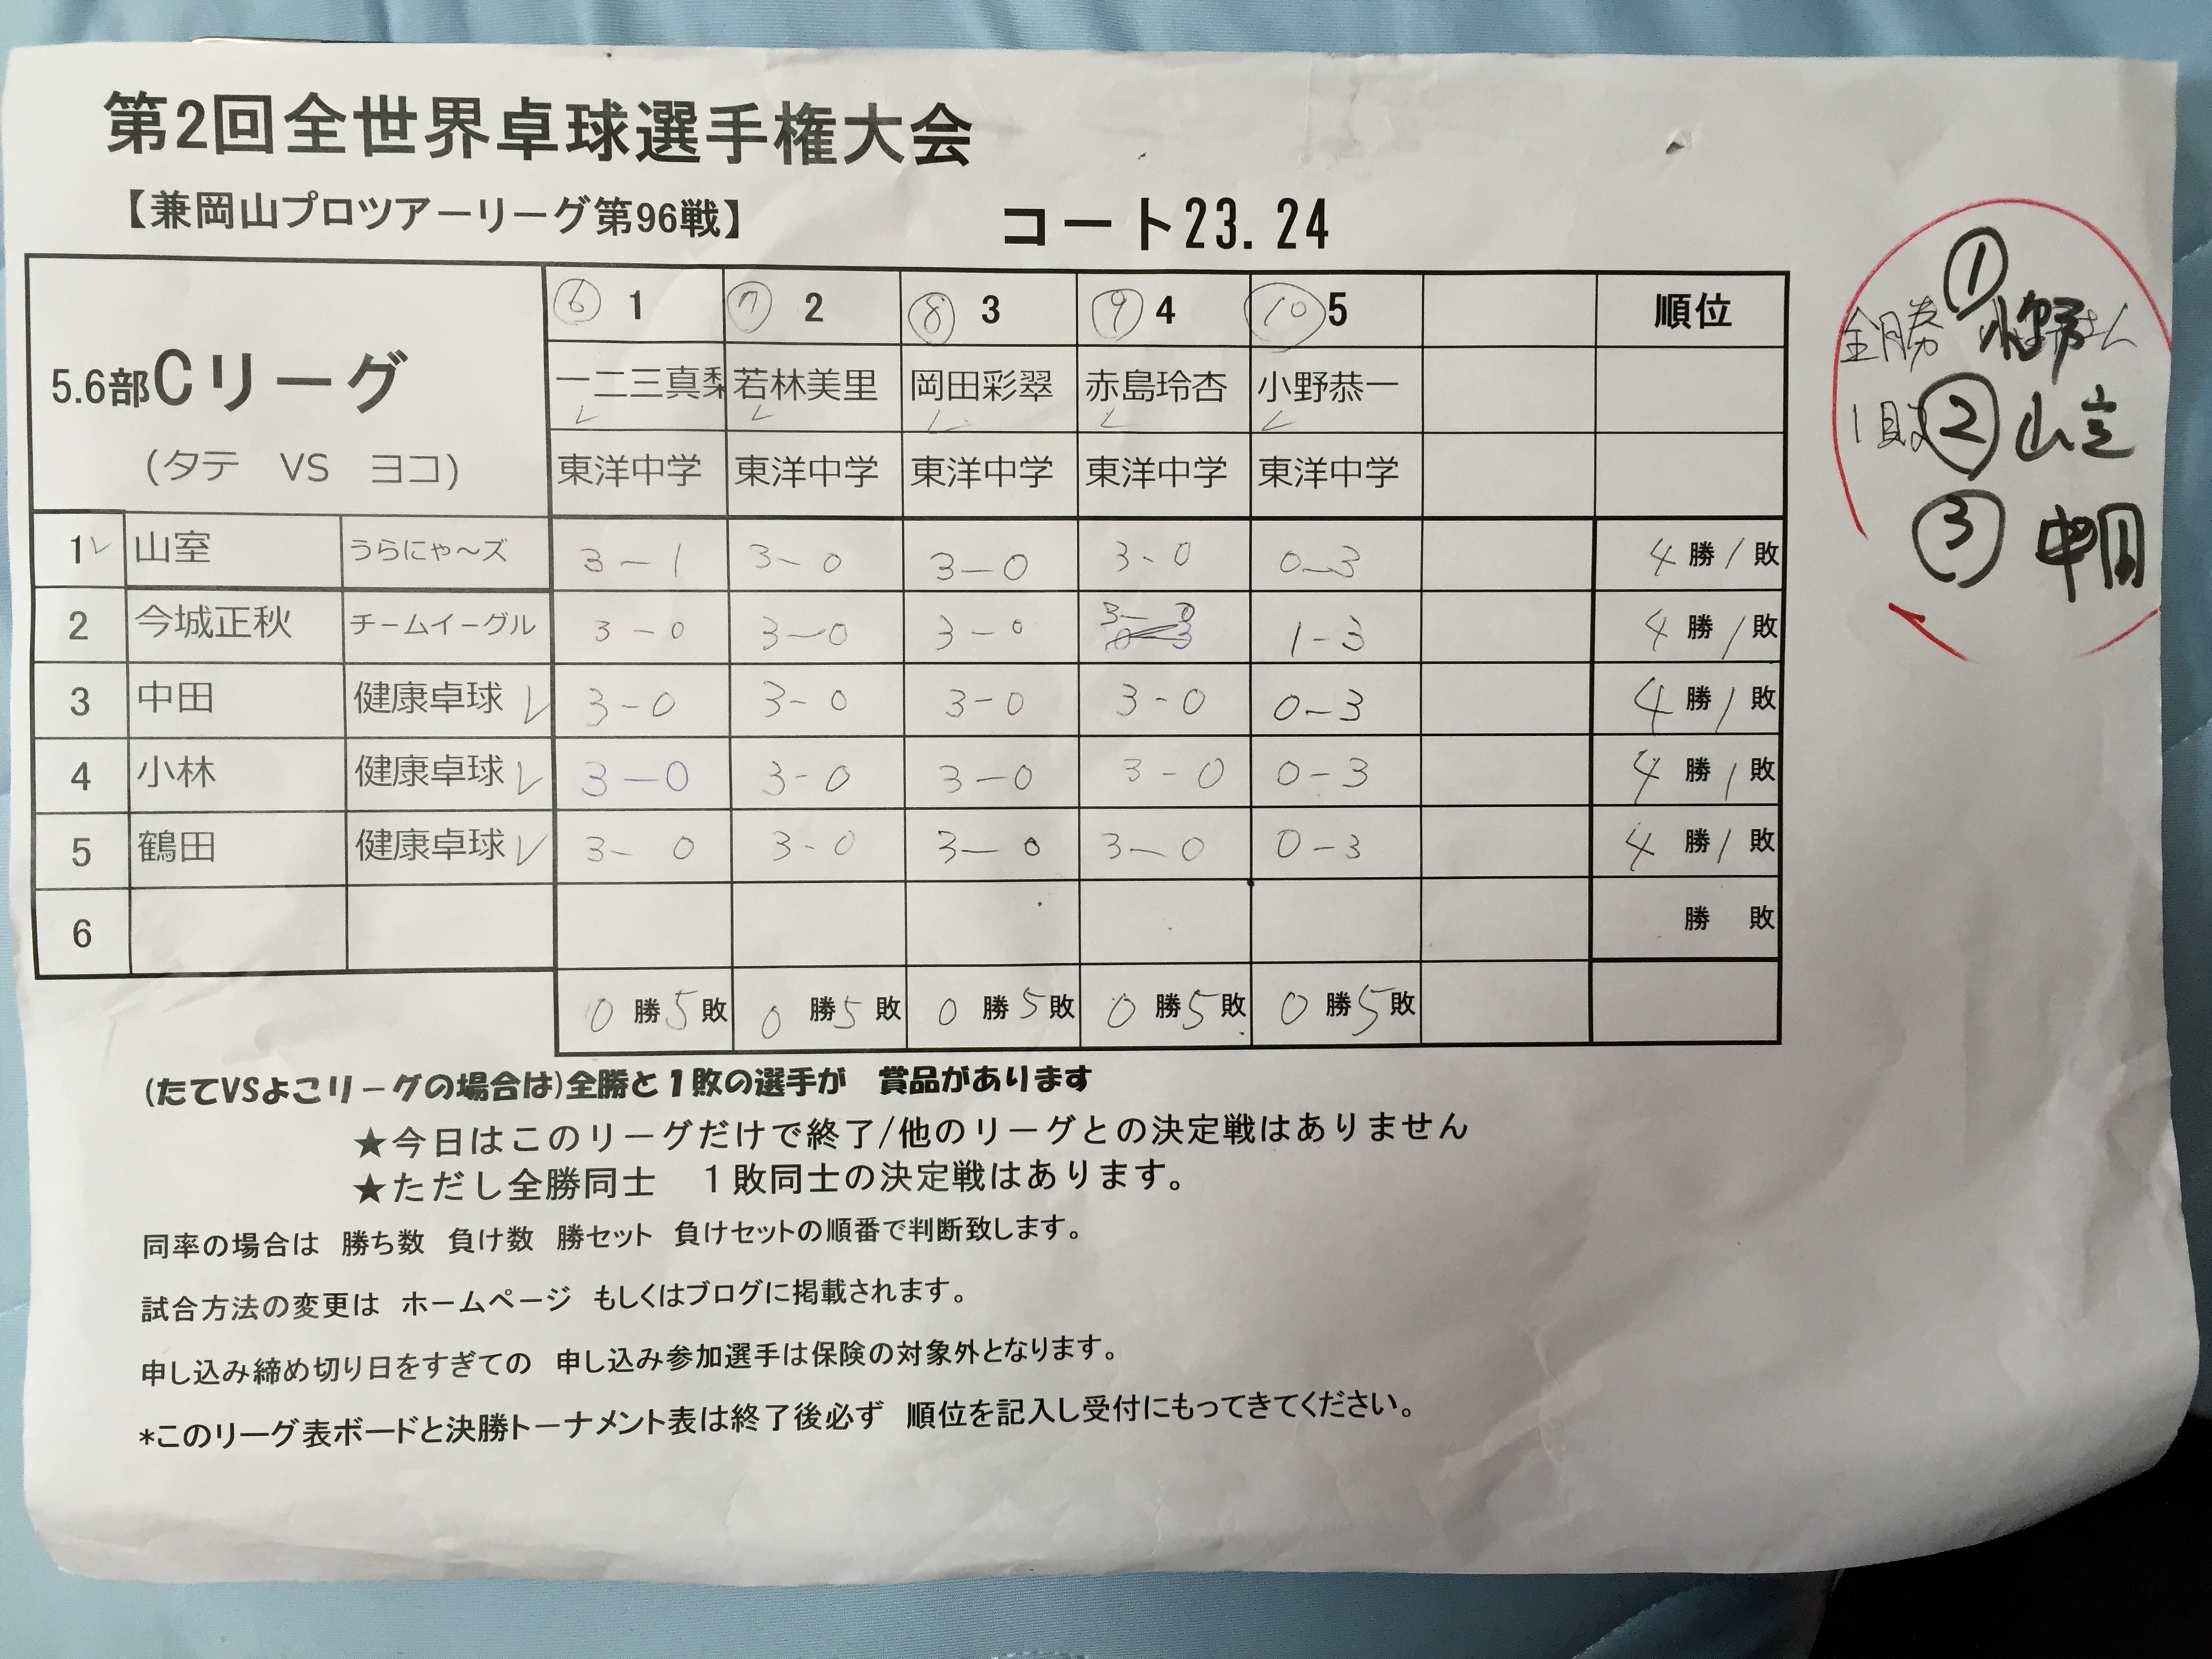 第2回全世界卓球選手権大会
【兼岡山プロツアーリーグ第96戦】
コート23.24
5.6部Cリーグ
(タテ VS ヨコ)
⑥ 1 ⑦ 2 ⑧ 3 ⑨ 4 ⑩ 5 順位
一二三真梨 若林美里 岡田彩翠 赤島玲杏 小野恭一
東洋中学 東洋中学 東洋中学 東洋中学 東洋中学
1 山室 うらにゃ～ズ 3-1 3-0 3-0 3-0 0-3 4勝1敗
2 今城正秋 チームイーグル 3-0 3-0 3-0 3-0 1-3 4勝1敗
3 中田 健康卓球 3-0 3-0 3-0 3-0 0-3 4勝1敗
4 小林 健康卓球 3-0 3-0 3-0 3-0 0-3 4勝1敗
5 鶴田 健康卓球 3-0 3-0 3-0 3-0 0-3 4勝1敗
6 勝 敗
0勝5敗 0勝5敗 0勝5敗 0勝5敗 0勝5敗
①
全勝 小野
1敗 ② 山室
③ 中田
(たてVSよこリーグの場合は)全勝と1敗の選手が 賞品があります
★今日はこのリーグだけで終了/他のリーグとの決定戦はありません
★ただし全勝同士 1敗同士の決定戦はあります。
同率の場合は 勝ち数 負け数 勝セット 負けセットの順番で判断致します。
試合方法の変更は ホームページ もしくはブログに掲載されます。
申し込み締め切り日をすぎての 申し込み参加選手は保険の対象外となります。
*このリーグ表ボードと決勝トーナメント表は終了後必ず 順位を記入し受付にもってきてください。